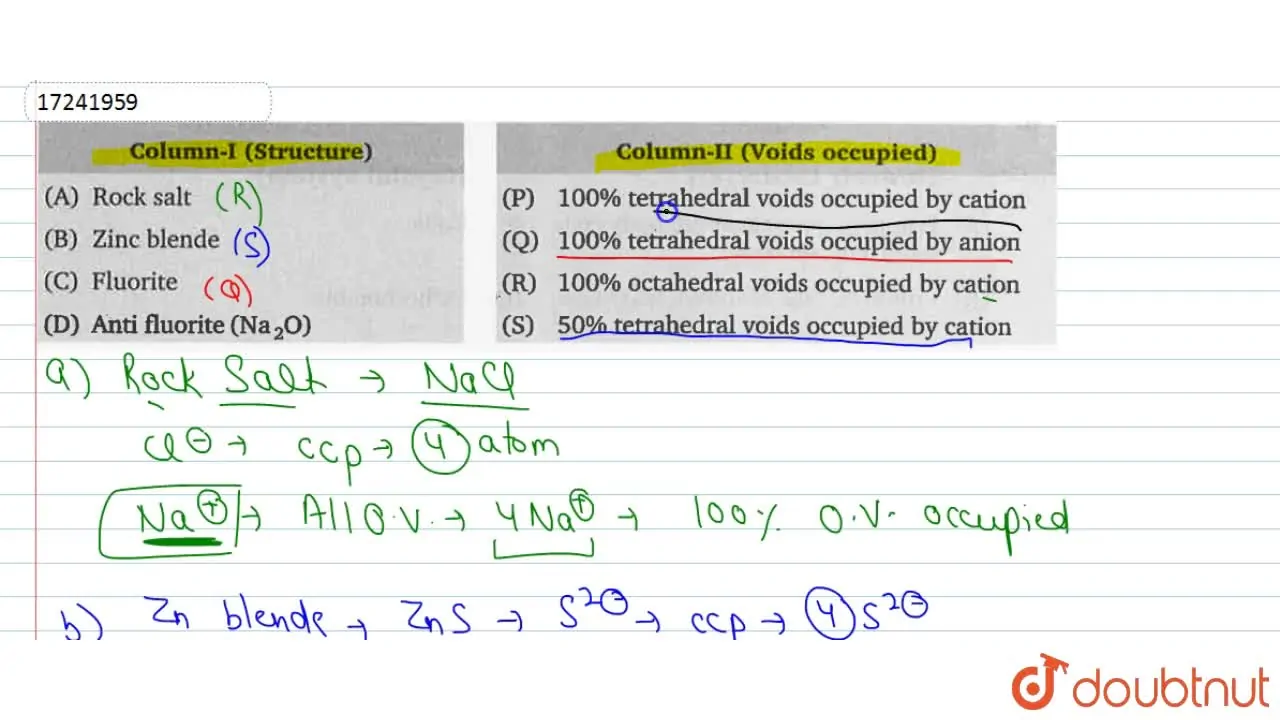 17241959
Column-I (Structure) Column-II (Voids occupied)
(A) Rock salt (R) (P) 100% tetrahedral voids occupied by cation
(B) Zinc blende (S) (Q) 100% tetrahedral voids occupied by anion
(C) Fluorite (Q) (R) 100% octahedral voids occupied by cation
(D) Anti fluorite (Na₂O) (S) 50% tetrahedral voids occupied by cation
a) Rock Salt → NaCl
Cl⊖ → ccp → 4 atom
Na⊕ → All O.V. → 4Na⊕ → 100% O.V. occupied
b) Zn blende → ZnS → S²⊖ → ccp → 4 S²⊖
doubtnut